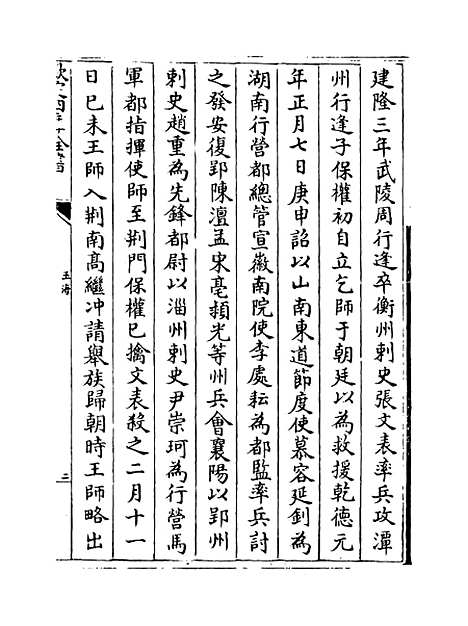 建隆三年武陵周行逢卒衡州刺史張文表率兵攻潭
州行逢子保權初自立乞師于朝廷以為救援乾德元
年正月七日庚申詔以山南東道節度使慕容延釗為
湖南行營都總管宣徽南院使李處耘為都監率兵討
之發安復郢陳澶孟宋亳潁光等州兵會襄陽以郢州
刺史趙重為先鋒都尉以淄州刺史尹崇珂為行營馬
軍都指揮使師至荆門保權已擒文表殺之二月十一
日已未王師入荆南高繼冲請舉族歸朝時王師略出
欽定四庫全書
玉海
三